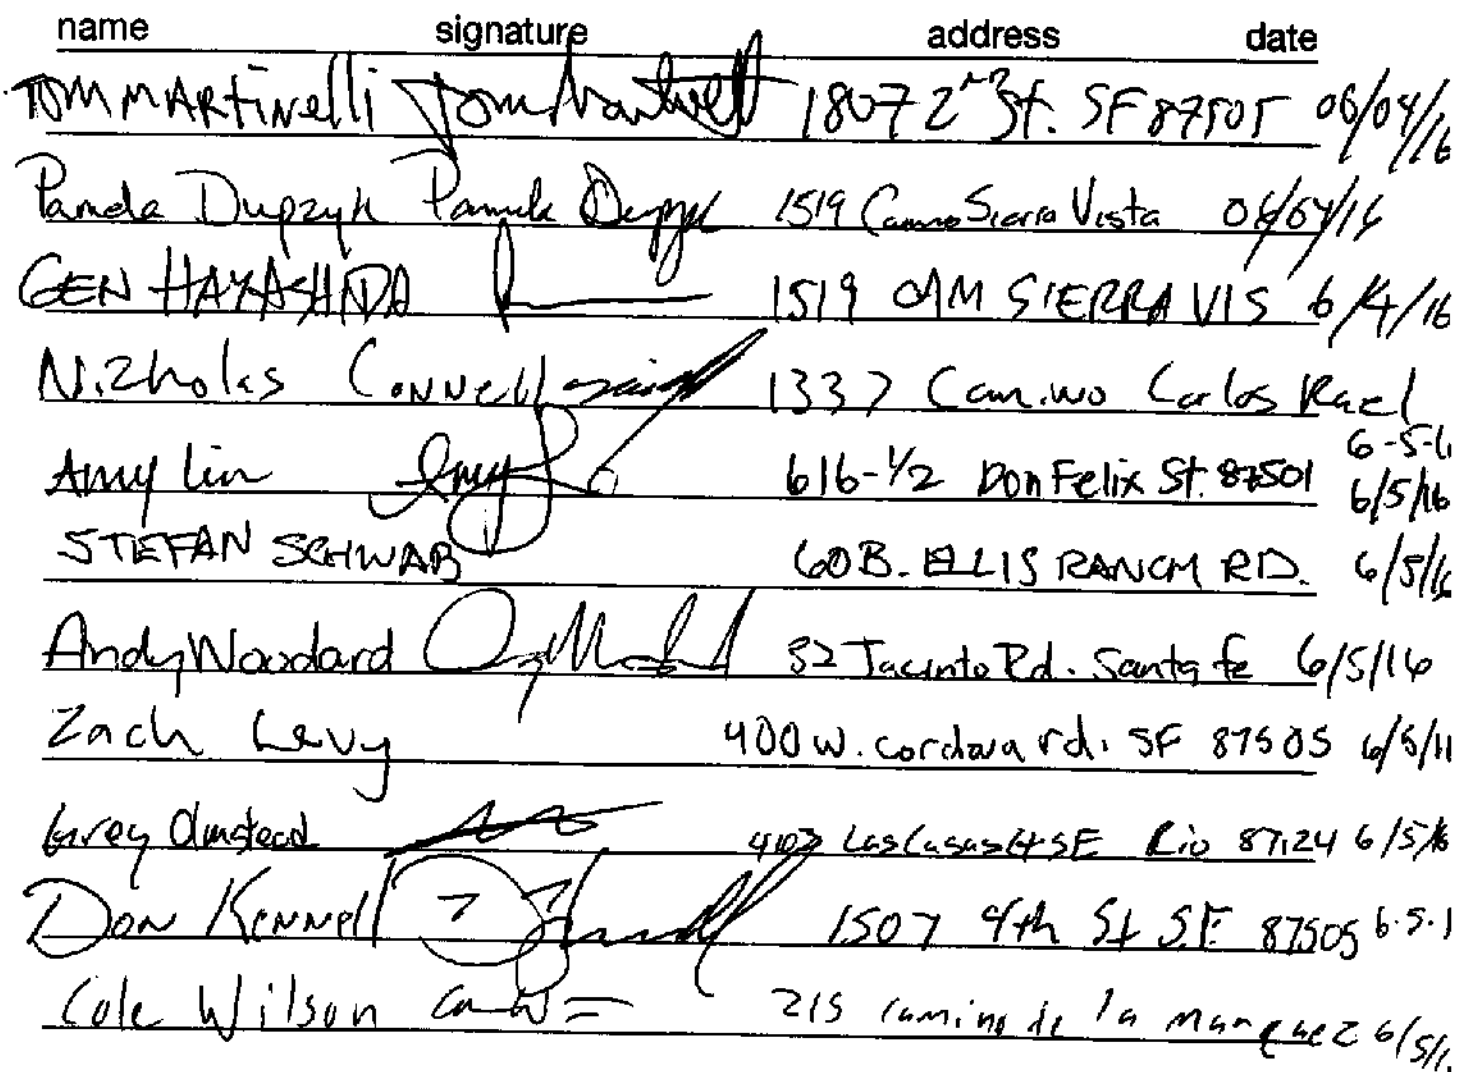 name signature address date
TOM MARTINelli Tom Martinelli 1807 2nd St. SF 87505 06/04/16
Pamela Dupzyk Pamela Dupzyk 1519 Camino Sierra Vista 06/04/16
GEN HAYASHIDA 1519 CAM SIERRA VIS 6/4/16
Nicholas CoNNell 1337 Camino Carlos Rael
6-5-1
Amy Lin Amy 616-1/2 Don Felix St. 87501 6/5/16
STEFAN SCHWAB 60B. ELLIS RANCH RD. 6/5/16
Andy Woodard 32 Jacinto Rd. Santa fe 6/5/16
Zach Levy 400 w. cordova rd. SF 87505 6/5/1
Greg Olmstead Las Casas Ct SE Rio 87124 6/5/16
Don Kennell 1507 4th St SF 87505 6.5.1
Cole Wilson 215 camino de la marquez 6/5/1